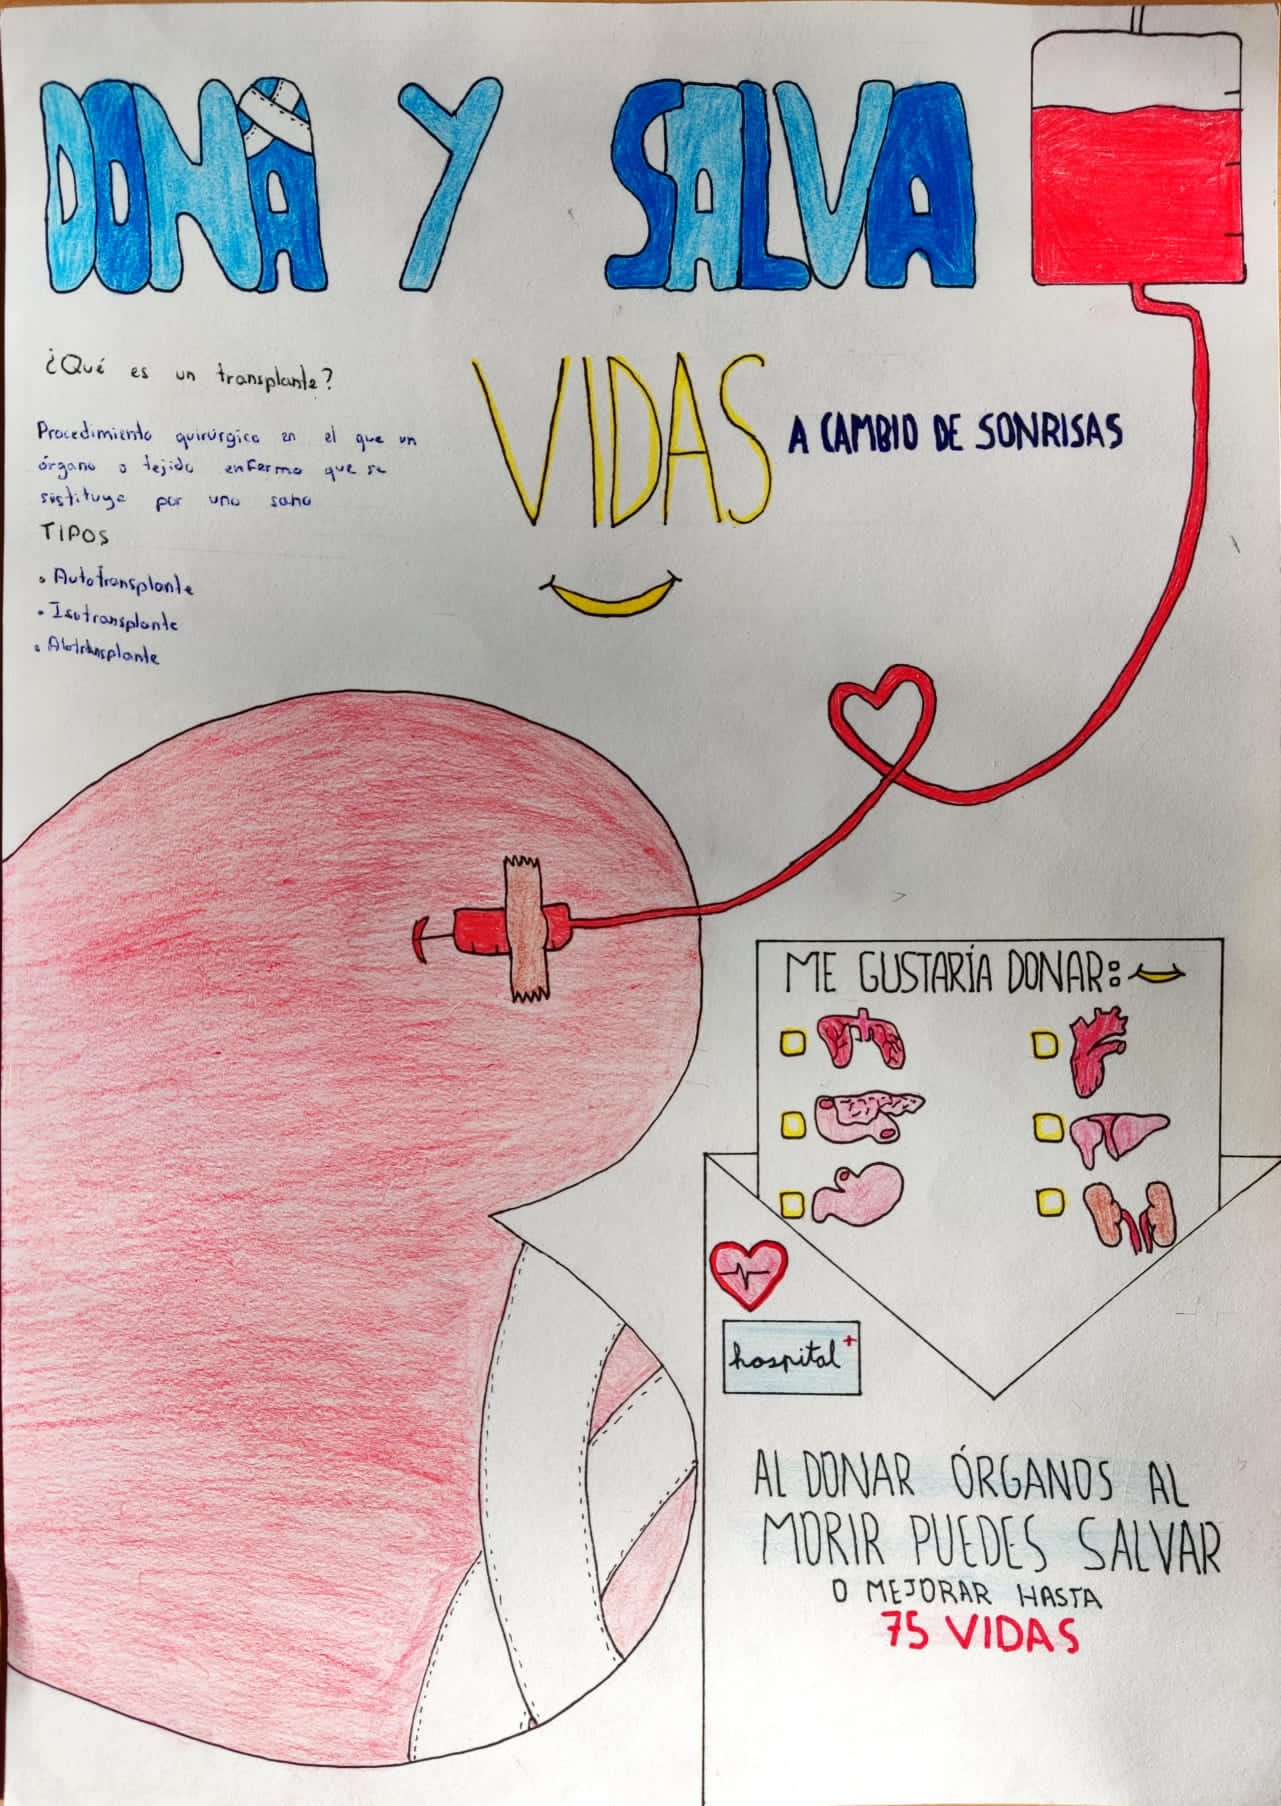 DONA Y SALVA
VIDAS A CAMBIO DE SONRISAS
¿Qué es un transplante?
Procedimiento quirúrgico en el que un
órgano o tejido enfermo que se
sustituye por uno sano
TIPOS
• Autotransplante
• Isotransplante
• Alotransplante
ME GUSTARÍA DONAR:
hospital+
AL DONAR ÓRGANOS AL
MORIR PUEDES SALVAR
O MEJORAR HASTA
75 VIDAS